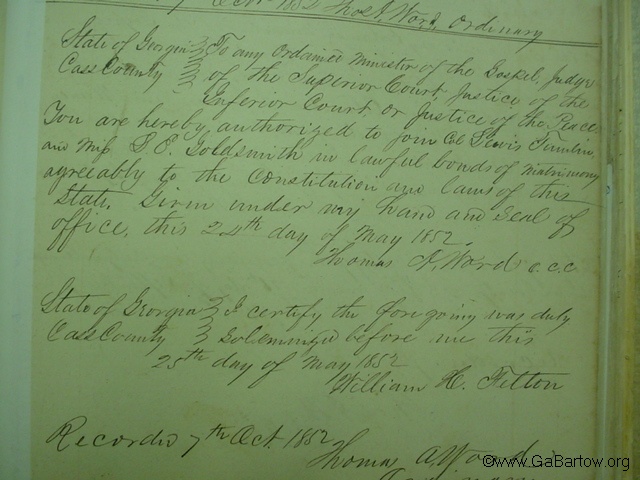 Oct 1852 Thos A. Ward, Ordinary
State of Georgia } To any Ordained Minister of the Gospel, Judge
Cass County } of the Superior Court, Justice of the
Inferior Court or Justice of the Peace
You are hereby authorized to join Col Lewis
and Miss S. E. Goldsmith in lawful bonds of matrimony
agreeably to the Constitution and laws of this
State. Given under my hand and Seal of
office, this 24th day of May 1852.
Thomas A. Ward c.c.o.
State of Georgia } I certify the foregoing was duly
Cass County } Solemnized before me this
25th day of May 1852
William H. Felton
Recorded 7th Oct. 1852
Thomas A. Ward
©www.GaBartow.org